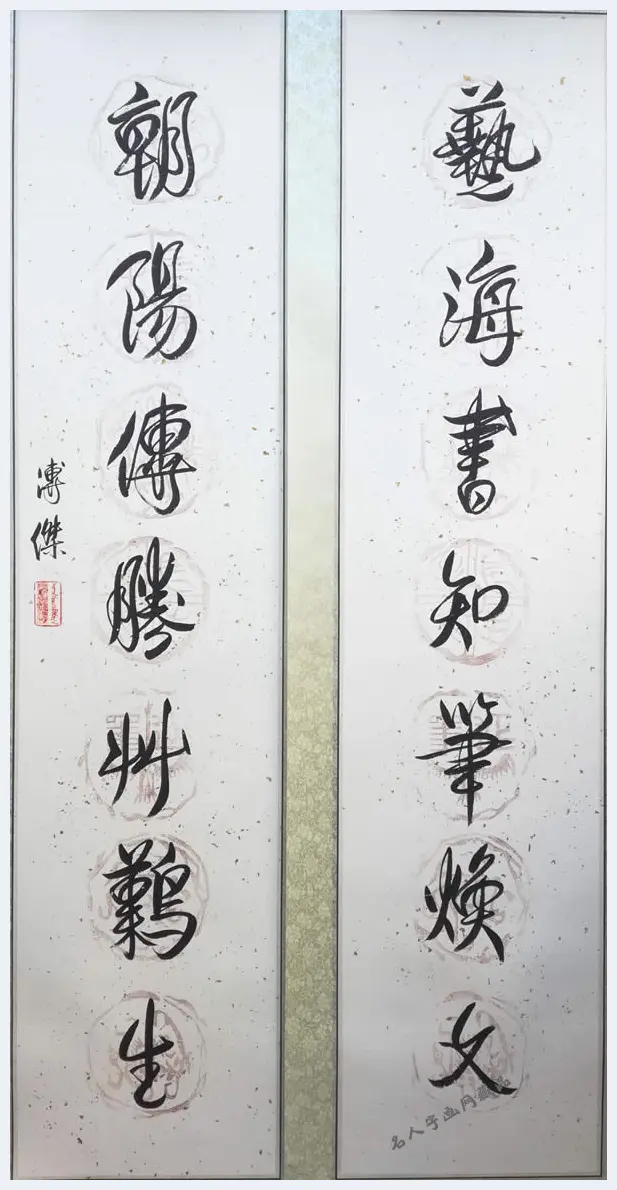 藝海書知筆煥文
朝陽傳勝艸生
溥傑
名人字画网